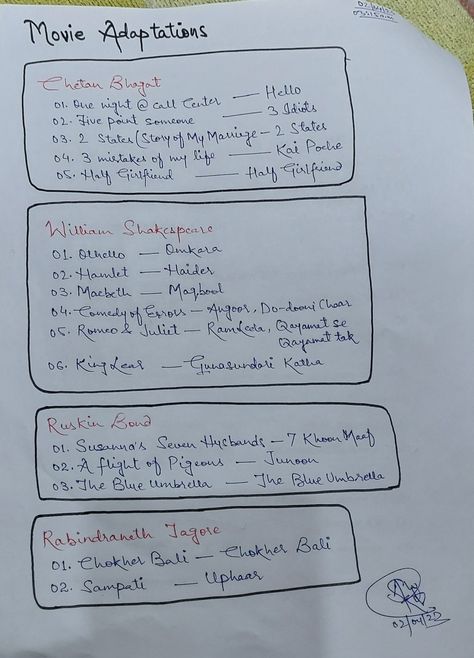 02/04/22
03:15am
Movie Adaptations
Chetan Bhagat
01. One night @ call Center — Hello
02. Five point someone — 3 Idiots
03. 2 States (Story of My Marriage - 2 States
04. 3 mistakes of my life — Kai Poche
05. Half Girlfriend — Half Girlfriend
William Shakespeare
01. Othello — Omkara
02. Hamlet — Haider
03. Macbeth — Maqbool
04. Comedy of Errors - Angoor, Do-dooni Chaar
05. Romeo & Juliet - RamLeela, Qayamat se
Qayamat tak
06. King Lear — Gunasundari Katha
Ruskin Bond
01. Susanna's Seven Husbands - 7 Khoon Maaf
02. A flight of Pigeons — Junoon
03. The Blue Umbrella — The Blue Umbrella
Rabindranath Tagore
01. Chokher Bali — Chokher Bali
02. Sampati — Uphaar
02/04/22